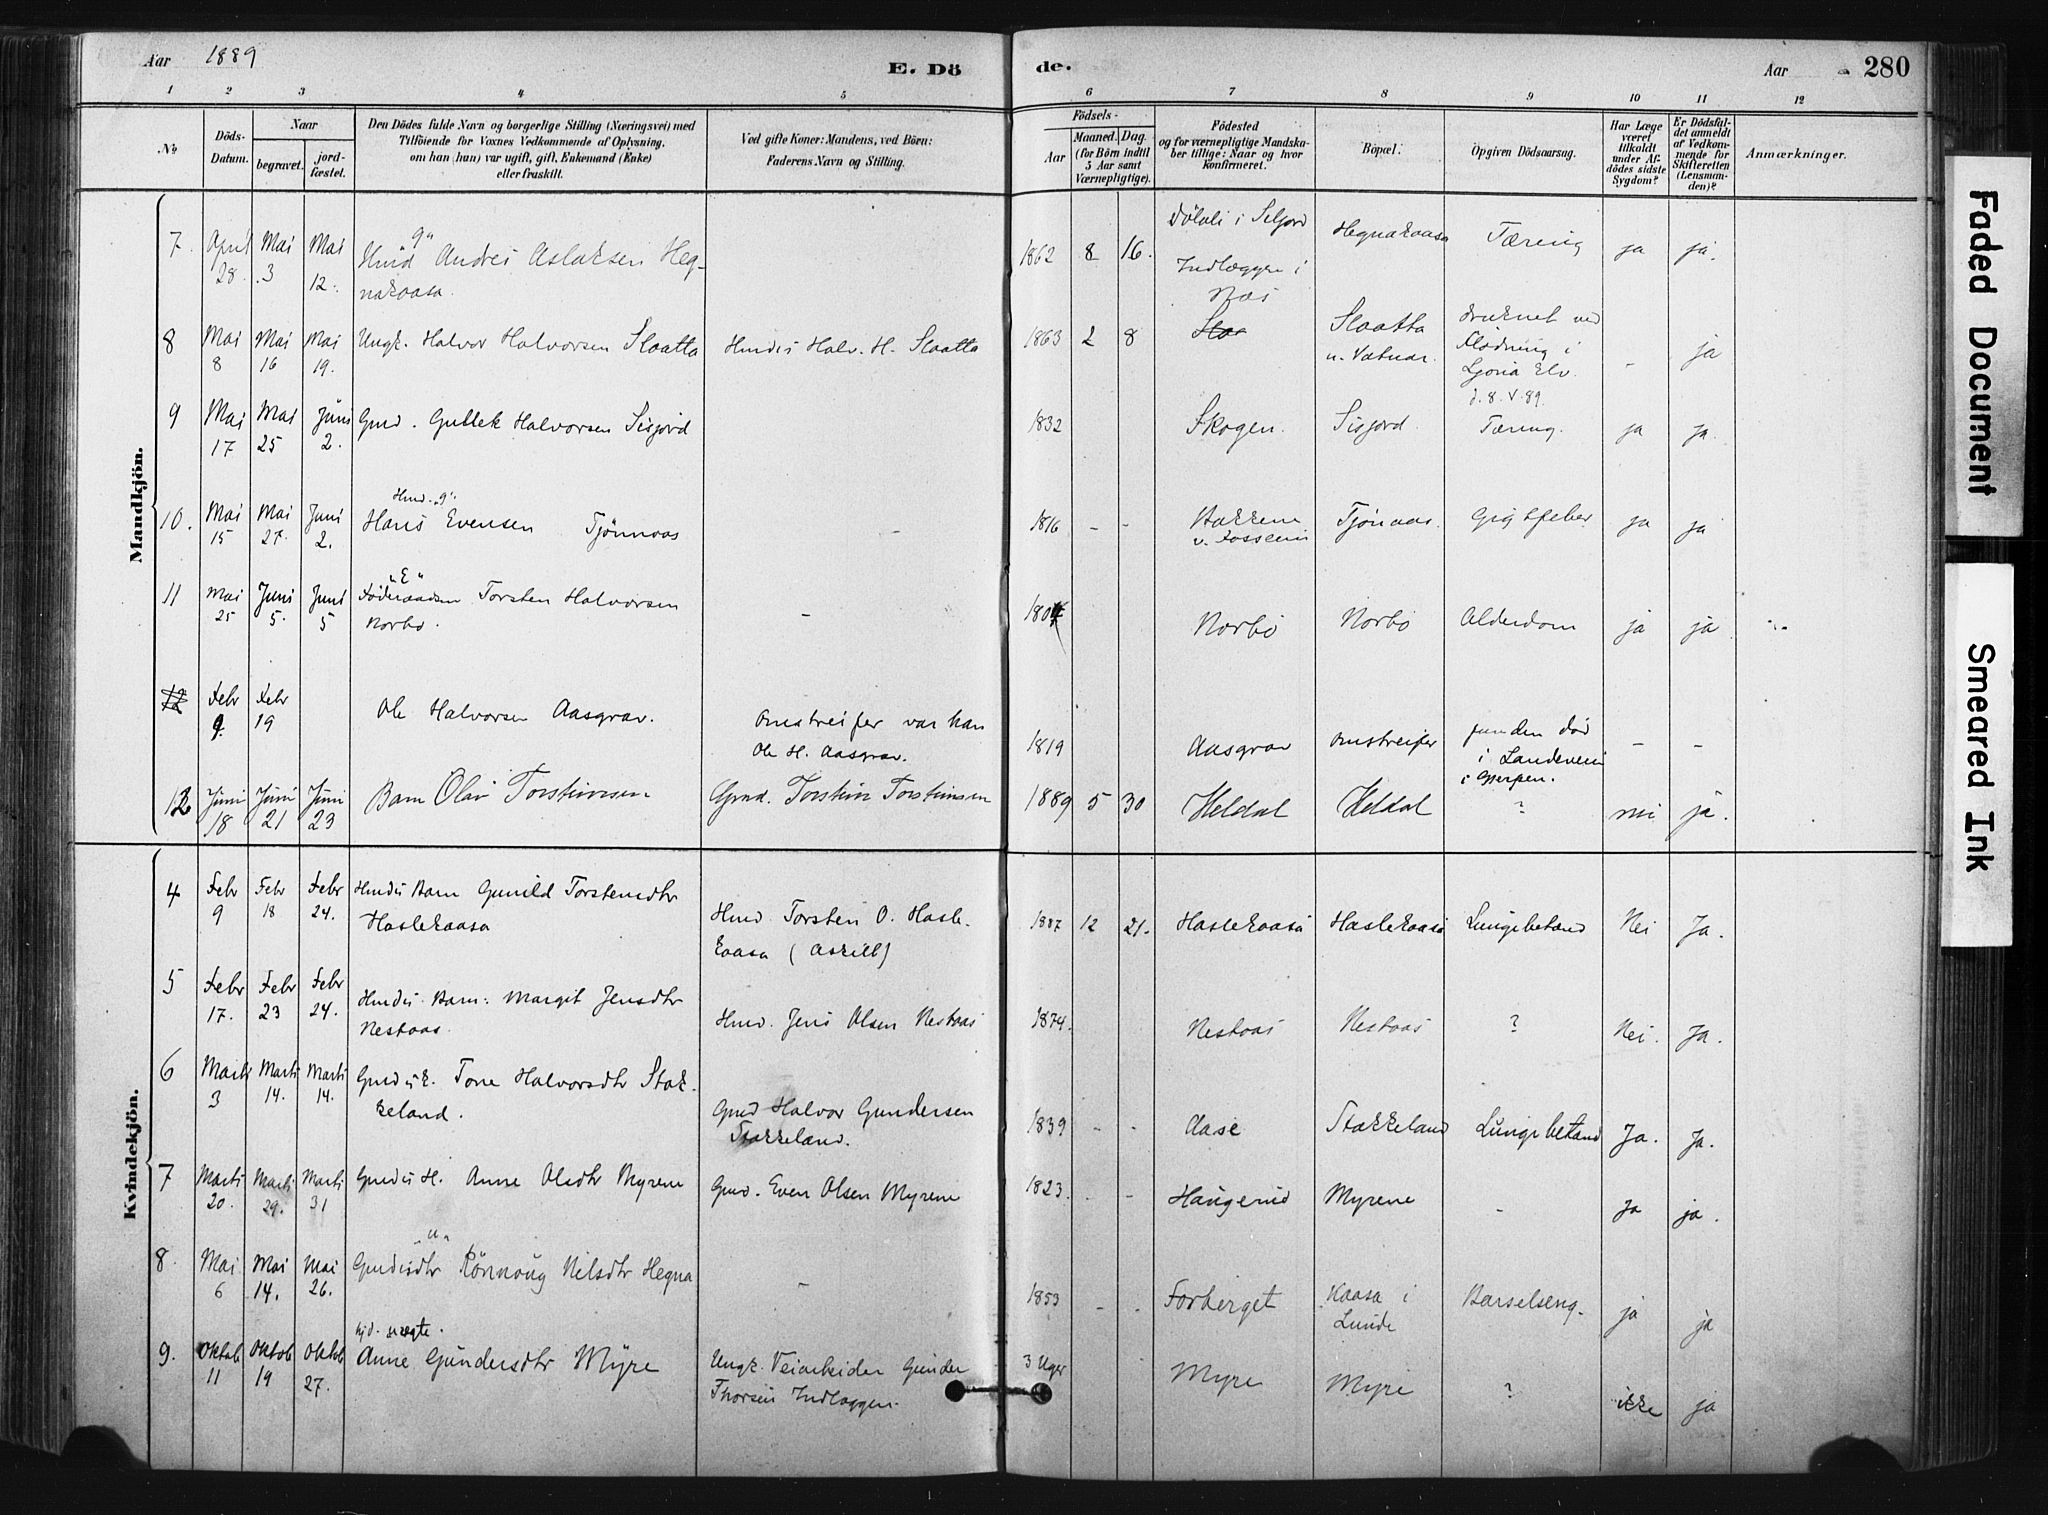 Aar 1889
E. Dö
de.
Aar
280
1 2 3 4 5 6 7 8 9 10 11 12
No
Döds-Datum.
Naar
begravet.
jordfæstet.
Den Dödes fulde Navn og borgerlige Stilling (Næringsvei) med
Tilföiende for Voxnes Vedkommende af Oplysning,
om han (hun) var ugift, gift, Enkemand (Enke)
eller fraskilt.
Ved gifte Koner: Mandens, ved Börn:
Faderens Navn og Stilling.
Födsels-
Aar
Maaned. Dag.
(for Börn indtil
5 Aar samt
Værnepligtige).
Födested
og for værnepligtige Mandska-
ber tillige: Naar og hvor
konfirmeret.
Bopæl.
Opgiven Dödsaarsag.
Har Læge
været
tilkaldt
under Af-
dödes sidste
Sygdom?
Er Dödsfal-
det anmeldt
af Vedkom-
mende for
Skifteretten
(Lensman-
den)?
Anmærkninger.
Mandkjön.
7. April 28. Mai 3 Mai 12. "g" Hmd Andres Aslaksen Heg-
nakaasa. 1862 8 16. i Seljord
Indlægger i
Næs Hegnakaasa Tæring ja ja.
8 Mai 8 Mai 16 Mai 19. Ungk. Halvor Halvorsen Slaatta Hmdes Halv. H. Slaatta 1863 2 8 Slaa Slaatta
u. Vatnar. druknet ved
Flødning i
Elv.
d. 8. V. 89. - ja
9 Mai 17 Mai 25 Juni 2. Gmd. Gullek Halvorsen Sisjord 1832 Skogen. Sisjord. Tæring. ja ja.
10. Mai 15 Mai 27. Juni 2. Hmd. "g"
Hans Evensen Tjönnaas - 1816 - - Bakkene
v. Fossen Tjönaas. Gigtfeber ja ja
11 Mai 25 Juni 5. Juni 5 "E"
Föderaadsm Torsten Halvorsen
Norbø. - 1804 Norbø Norbø Alderdom ja ja
12 Febr 9. Febr 19 Ole Halvorsen Aasgrav. Omstreifer var han
Ole H. Aasgrav. 1819 Aasgrav omstreifer funden död
i Landeveien
i Gjerpen. - -
12 Juni 18 Juni 21 Juni 23 Barn Olav Torsteinsen Gmd. Torstein Torsteinsen 1889 5 30 Heldal Heldal ? nei ja.
Kvindekjön.
4 Febr 9 Febr 18 Febr 24. Hmds Barn Gunild Torstensdtr
Haslekaasa Hmd. Torsten O. Hasle-
kaasa (Askilt) 1887 12 21. Haslekaasa Haslekaasa Lungebetænd Nei Ja.
5 Febr 17. Febr 23 Febr 24. Hmds Barn: Margit Jensdtr
Nestaas. Hmd. Jens Olsen Nestaas 1874. Nestaas Nestaas ? Nei. Ja.
6 Marts 3 Marts 14. Marts 14. Gmds k. Tone Halvorsdtr Stok-
keland. Gmd Halvor Gundersen
Stokkeland. 1839 - - Aase Stokkeland Lungebetænd Ja. Ja.
7 Marts 20. Marts 29. Marts 31 Gmds H. Anne Olsdtr Myrene Gmd. Even Olsen Myrene 1823. - - Haugerud Myrene - Ja ja.
8. Mai 6 Mai 14. Mai 26. "u"
Gmdsdtr Rönnoug Nilsdtr Hegna - 1853 - - Forberget Kaasa i
Lunde Barselseng. ja ja
9. Oktob 11 Oktob 19 Oktob 27. hjd. uægte.
Anne Gundersdtr Myre Ungk. Veiarbeider Gunder
Thorsen Indlæggen. 3 Uger Myre Myre ? ikke ja
Faded Document
Smeared Ink